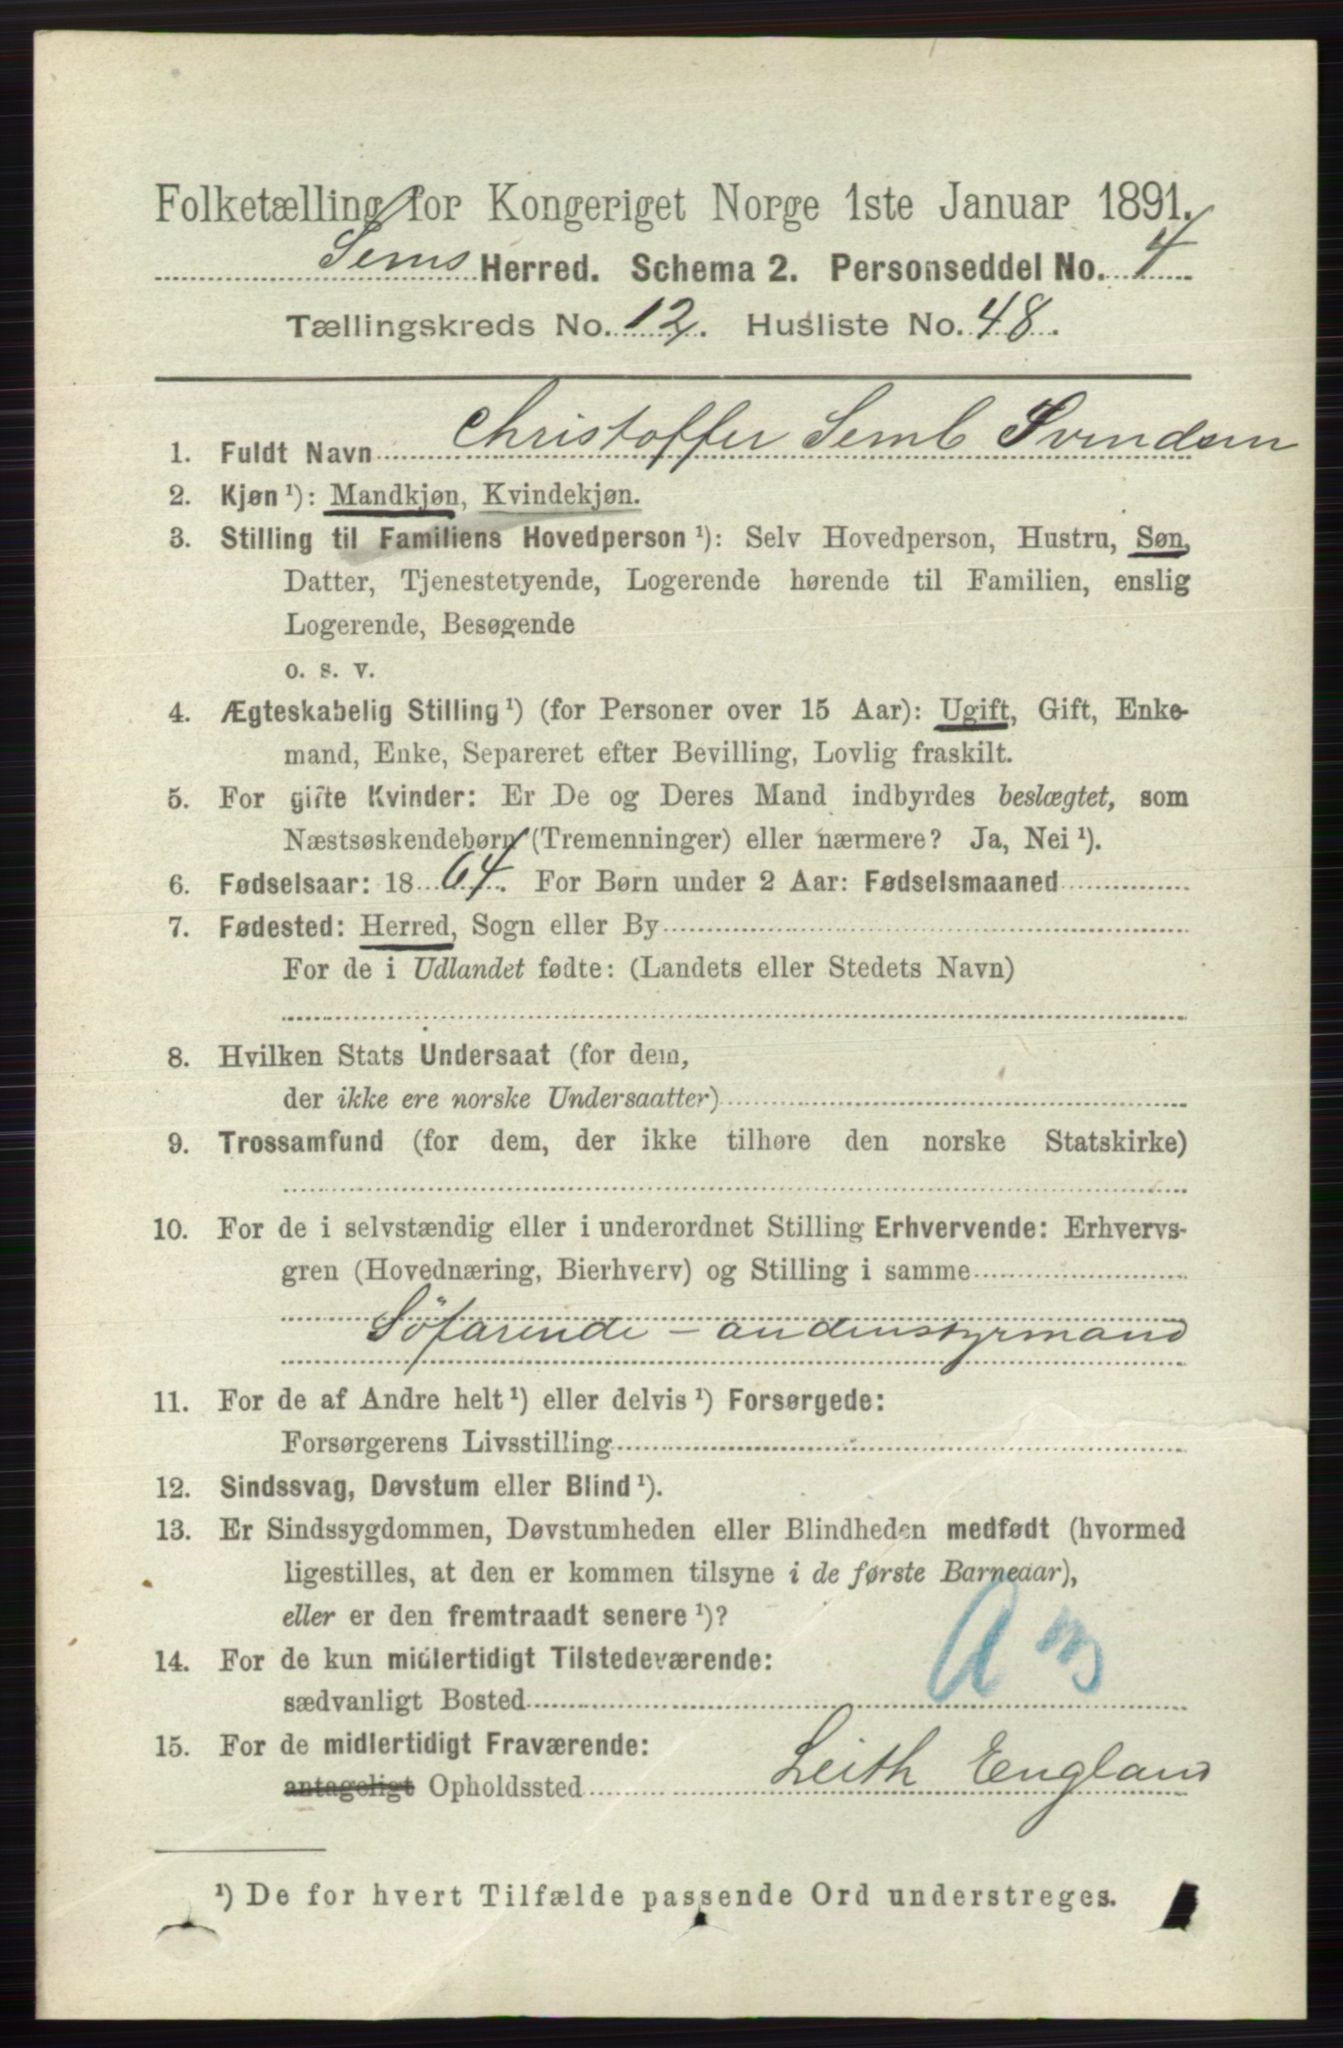 Folketælling for Kongeriget Norge 1ste Januar 1891.
Sems Herred. Schema 2. Personseddel No. 4
Tællingskreds No. 12. Husliste No. 48.
1. Fuldt Navn Christoffer Semb Svendsen
2. Kjøn ¹): Mandkjøn, Kvindekjøn.
3. Stilling til Familiens Hovedperson ¹): Selv Hovedperson, Hustru, Søn,
Datter, Tjenestetyende, Logerende hørende til Familien, enslig
Logerende, Besøgende
o. s. v.
4. Ægteskabelig Stilling ¹) (for Personer over 15 Aar): Ugift, Gift, Enke-
mand, Enke, Separeret efter Bevilling, Lovlig fraskilt.
5. For gifte Kvinder: Er De og Deres Mand indbyrdes beslægtet, som
Næstsøskendebørn (Tremenninger) eller nærmere? Ja, Nei ¹).
6. Fødselsaar: 1864. For Børn under 2 Aar: Fødselsmaaned
7. Fødested: Herred, Sogn eller By
For de i Udlandet fødte: (Landets eller Stedets Navn)
8. Hvilken Stats Undersaat (for dem,
der ikke ere norske Undersaatter)
9. Trossamfund (for dem, der ikke tilhøre den norske Statskirke)
10. For de i selvstændig eller i underordnet Stilling Erhvervende: Erhvervs-
gren (Hovednæring, Bierhverv) og Stilling i samme
Söfarende - andenstyrmand
11. For de af Andre helt ¹) eller delvis ¹) Forsørgede:
Forsørgerens Livsstilling
12. Sindssvag, Døvstum eller Blind ¹).
13. Er Sindssygdommen, Døvstumheden eller Blindheden medfødt (hvormed
ligestilles, at den er kommen tilsyne i de første Barneaar),
eller er den fremtraadt senere ¹)?
14. For de kun midlertidigt Tilstedeværende:
sædvanligt Bosted
15. For de midlertidigt Fraværende:
antageligt Opholdssted Leith England
¹) De for hvert Tilfælde passende Ord understreges.